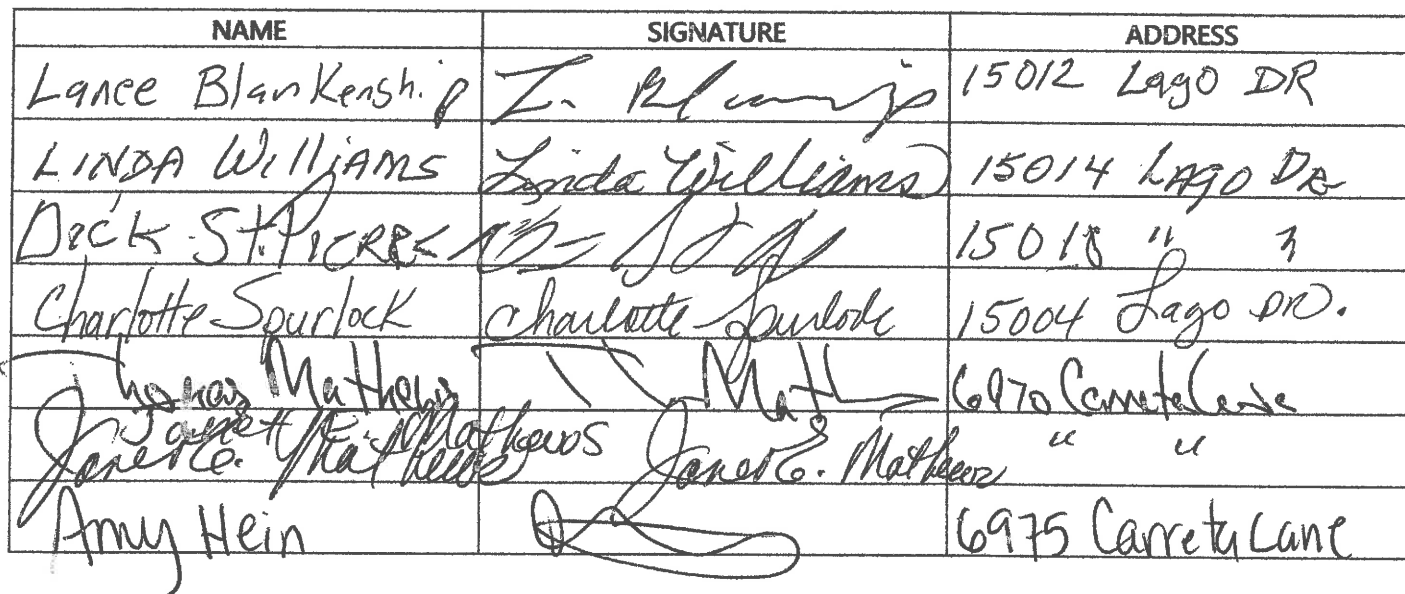 NAME SIGNATURE ADDRESS
Lance Blankenship L. 15012 Lago DR
LINDA WilliAMS Linda Williams 15014 LAgo DR
Dick St. PIERRE 15018 " "
Charlotte Spurlock Charlotte Spurlock 15004 Lago DR.
Thomas Mathews T. Math 6970 Carreta Lane
Janet E. Mathews
Janet E. Mathews Janet E. Mathews " "
Amy Hein 6975 Carreta Lane